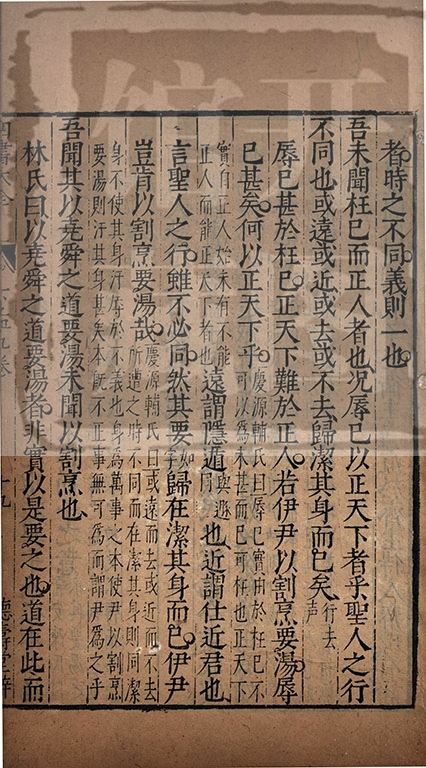 者時之不同義則一也
吾未聞枉己而正人者也況辱己以正天下者乎聖人之行
不同也或遠或近或去或不去歸潔其身而已矣行去聲
辱己甚於枉己正天下難於正人若伊尹以割烹要湯辱
己甚矣何以正天下乎慶源輔氏曰辱己實由於枉己不
可以爲未甚而已可枉也正天下
實自正人始未有不能
正人而能正天下者也遠謂隱遁與遯同也近謂仕近君也
言聖人之行雖不必同然其要如字歸在潔其身而已伊尹
豈肯以割烹要湯哉慶源輔氏曰或遠而去或近而不去
所遭之時不同而在潔其身則同潔
身不使其身汙辱於不義也身爲萬事之本使尹以割烹
要湯則汙其身甚矣本既不正事無可爲而謂尹爲之乎
吾聞其以堯舜之道要湯未聞以割烹也
林氏曰以堯舜之道要湯者非實以是要之也道在此而
四書大全
十九